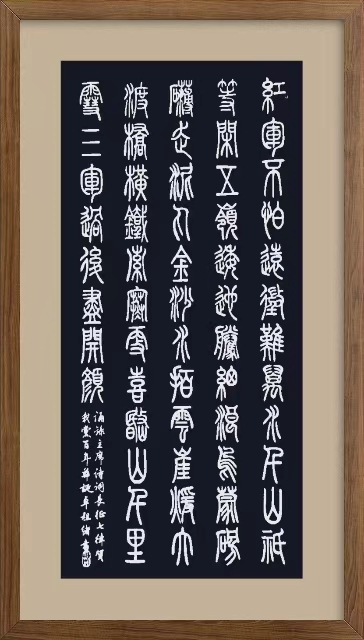 紅軍不怕遠徵難萬水千山祇
等閑五嶺逶迤騰細浪烏蒙磅
礴走泥丸金沙水拍雲崖暖大
渡橋橫鐵索寒更喜岷山千里
雪三軍過後盡開顏
詠主席詩詞長征七律賀
我黨百年華誕